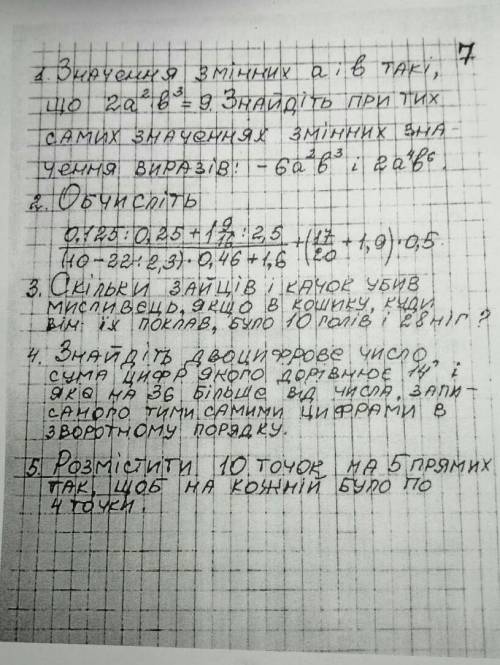 7
1. Значення змінних а і в такі,
що 2a²b³ = 9. Знайдіть при тих
самих значеннях змінних зна-
чення виразів: -6a²b³ і 2a⁴b⁶.
2. Обчисліть
(0,125 : 0,25 + 1 9/16 : 2,5) / ((10 - 22 : 2,3) · 0,46 + 1,6) + (17/20 + 1,9) · 0,5.
3. Скільки зайців і качок убив
мисливець, якщо в кошику, куди
він їх поклав, було 10 голів і 28 ніг?
4. Знайдіть двоцифрове число,
сума цифр якого дорівнює 14 і
яке на 36 більше від числа, запи-
саного тими самими цифрами в
зворотному порядку.
5. Розмістити 10 точок на 5 прямих
так, щоб на кожній було по
4 точки.